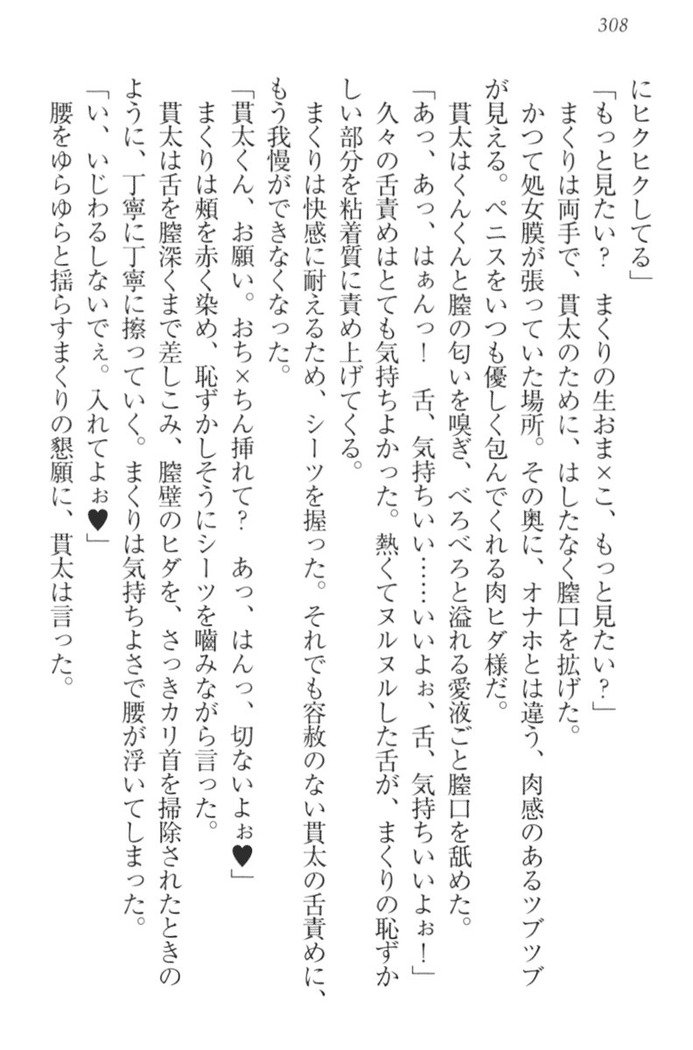 308
にヒクヒクしてる」
「もっと見たい? まくりの生おま×こ、もっと見たい?」
まくりは両手で、貫太のために、はしたなく膣口を拡げた。
かつて処女膜が張っていた場所。その奥に、オナホとは違う、肉感のあるツブツブ
が見える。ペニスをいつも優しく包んでくれる肉ヒダ様だ。
貫太はくんくんと膣の匂いを嗅ぎ、べろべろと溢れる愛液ごと膣口を舐めた。
「あっ、あっ、はぁんっ! 舌、気持ちいい……いいよぉ、舌、気持ちいいよぉ!」
久々の舌責めはとても気持ちよかった。熱くてヌルヌルした舌が、まくりの恥ずか
しい部分を粘着質に責め上げてくる。
まくりは快感に耐えるため、シーツを握った。それでも容赦のない貫太の舌責めに、
もう我慢ができなくなった。
「貫太くん、お願い。おち×ちん挿れて? あっ、はんっ、切ないよぉ♥」
まくりは頰を赤く染め、恥ずかしそうにシーツを嚙みながら言った。
貫太は舌を膣深くまで差しこみ、膣壁のヒダを、さっきカリ首を掃除されたときの
ように、丁寧に丁寧に擦っていく。まくりは気持ちよさで腰が浮いてしまった。
「い、いじわるしないでぇ。入れてよぉ♥」
腰をゆらゆらと揺らすまくりの懇願に、貫太は言った。